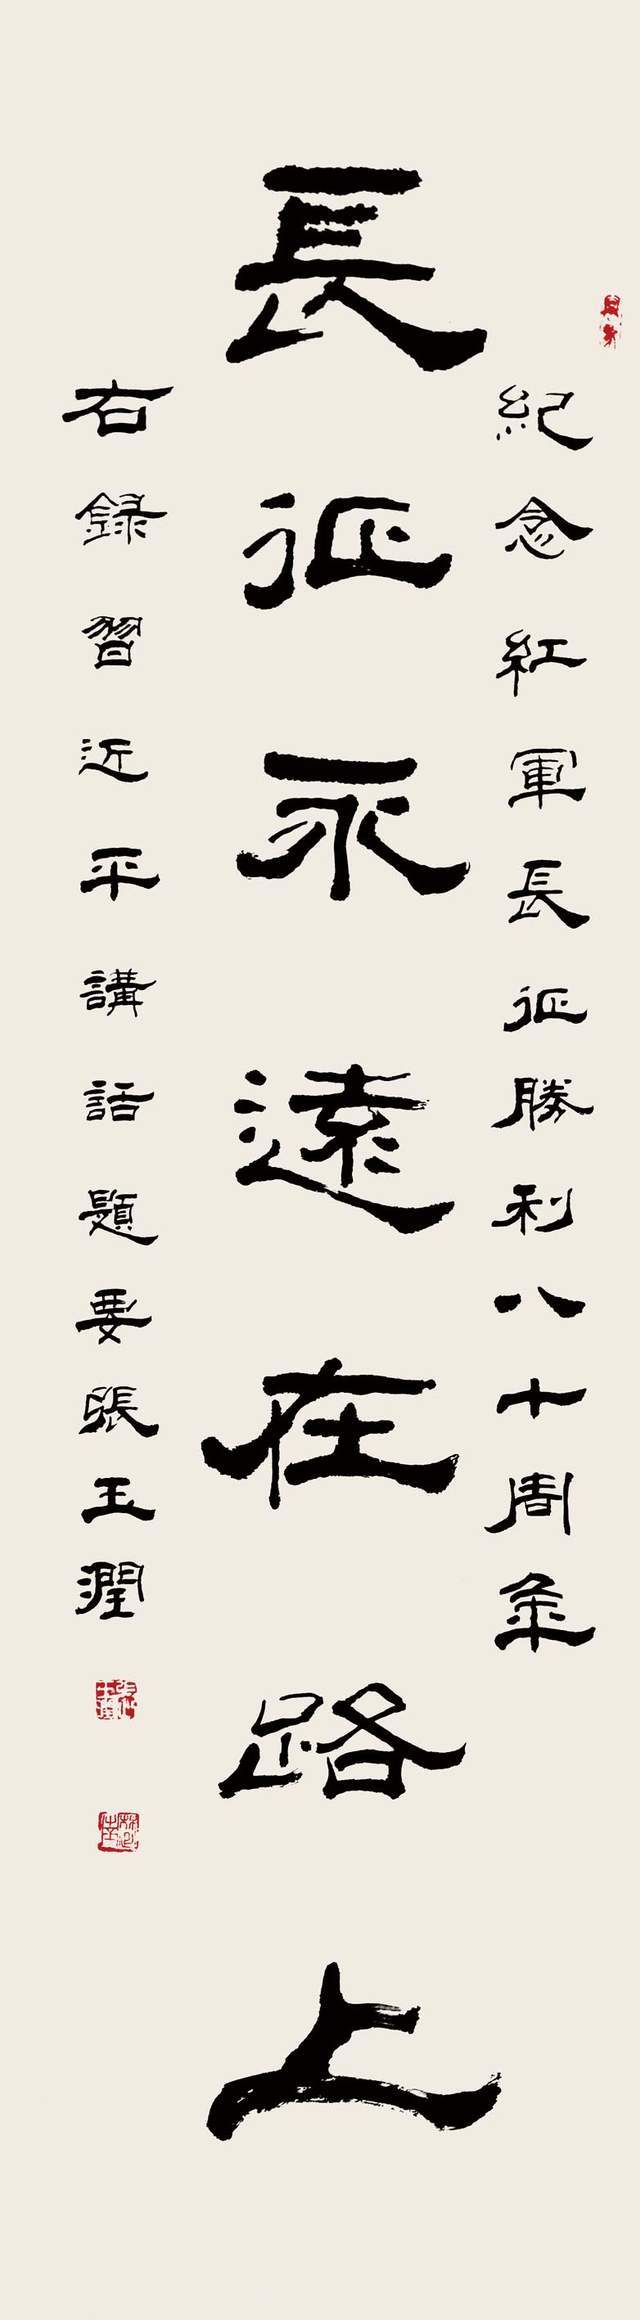 紀念紅軍長征勝利八十周年
長征永遠在路上
右録習近平講話題要張玉潤